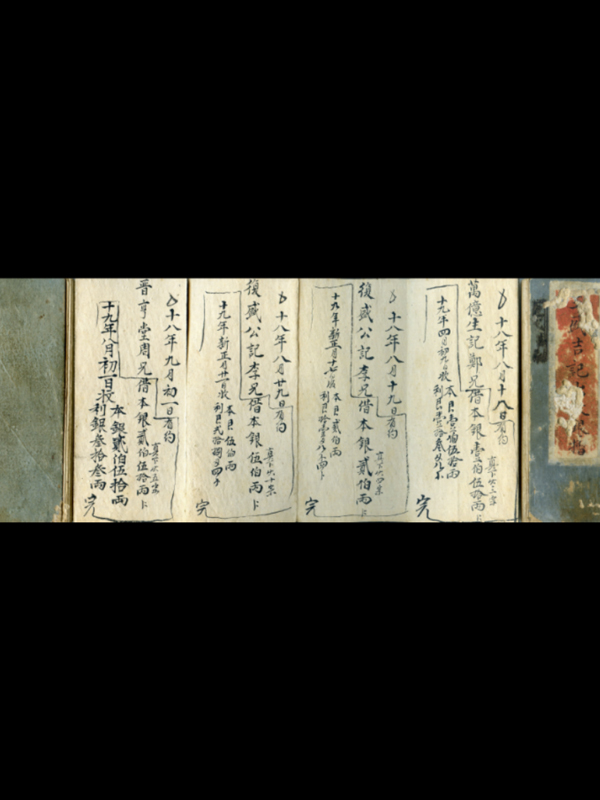 吉記
十八年八月十八日有約
萬億生記鄭兄借本銀壹佰伍拾両
十九年四月初九日收
本艮壹佰伍拾両
十八年八月十九日有約
復盛公記李兄借本銀貳佰両
十九年新正月十七日收
本艮貳佰両
完
十八年八月廿九日有約
復盛公記李兄借本銀伍佰両
十九年新正月廿一日收
本艮伍佰両
完
十八年九月初一日有約
晋亨堂周兄借本銀貳佰伍拾両
十九年八月初一日收
本銀貳佰伍拾両
利銀叁拾叁両
完